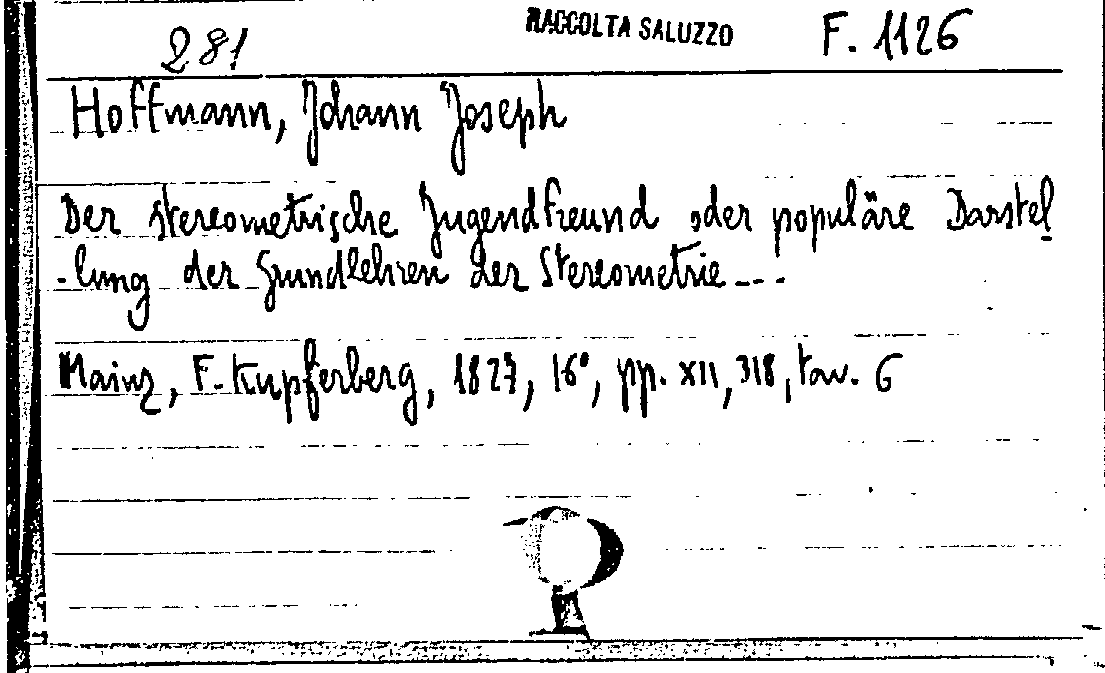 281 RACCOLTA SALUZZO F. 1126
Hoffmann, Johann Joseph
Der stereometrische Jugendfreund oder populäre Darstel
-lung der Grundlehren der Stereometrie---
Mainz, F. Kupferberg, 1827, 16°, pp. XII, 318, tav. 6